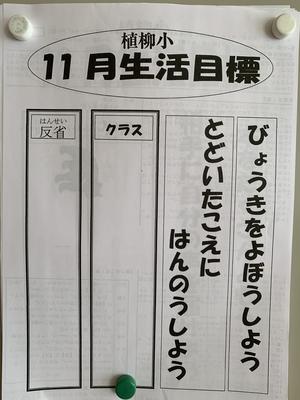 植柳小
11月生活目標
びょうきをよぼうしよう
とどいたこえに
はんのうしよう
クラス
はんせい
反省